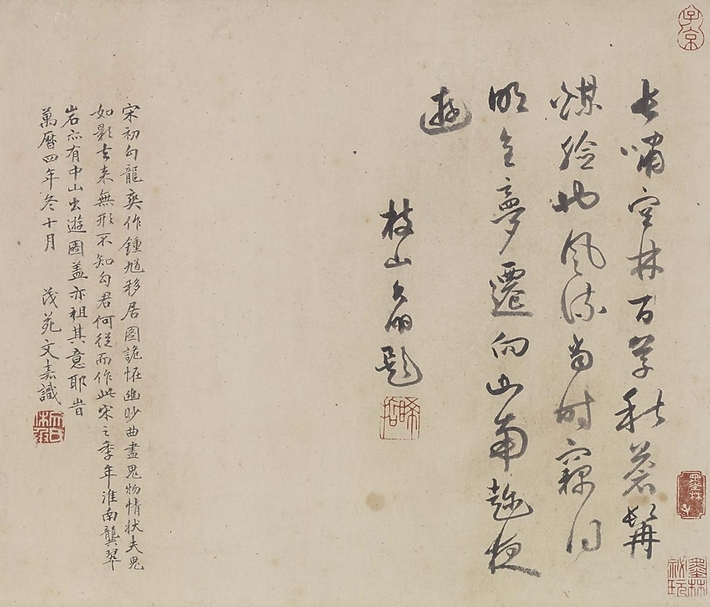 子京
長嘯空林百草秋蒼髯
煤臉也風流當時竊得
明皇夢遷向山南趁夜
遊
枝山允明題
晞哲
宋初勾龍爽作鍾馗移居圖詭怪幽眇曲盡鬼物情狀夫鬼
如影去來無形不知勾君何從而作此宋之季年淮南龔翠
岩亦有中山出遊圖蓋亦祖其意耶旹
萬曆四年冬十月 茂苑文嘉識
墨林子
墨林祕玩